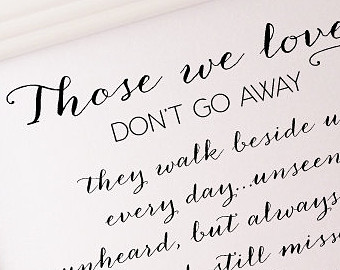 Those we love
DON'T GO AWAY
they walk beside u
every day...unseen
unheard, but always
still misse